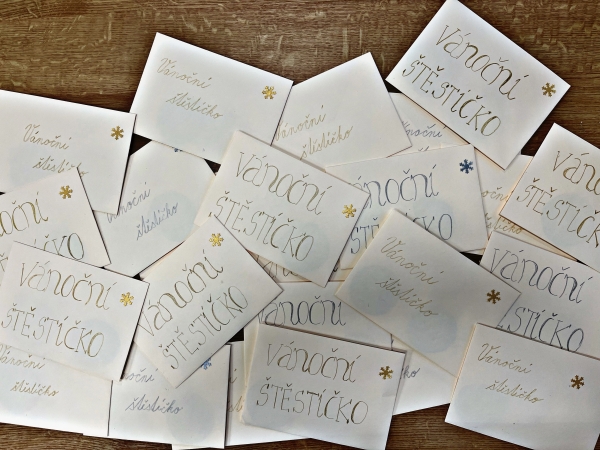 VÁNOČNÍ
ŠTĚSTÍČKO
Vánoční
štěstíčko
Vánoční
štěstíčko
ánoční
štěstíčko
VÁNOČNÍ
ŠTĚSTÍČKO
VÁNOČNÍ
ŠTĚSTÍČKO
VÁNOČNÍ
VÁNOČNÍ
ŠTĚSTÍČKO
ánoční
štěstíčko
VÁNOČNÍ
ŠTĚSTÍČKO
VÁNOČNÍ
ŠTĚSTÍČKO
Vánoční
štěstíčko
VÁNOČNÍ
ŠTĚSTÍČKO
VÁNOČNÍ
VÁNOČNÍ
ŠTĚSTÍČKO
Vánoční
štěstíčko
štěstíčko
štěstíčko